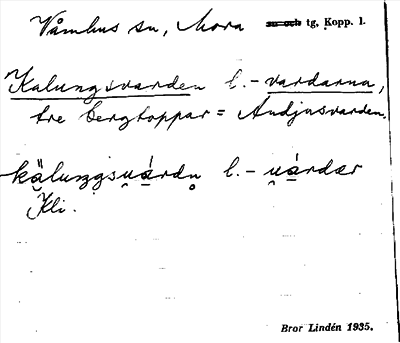 Våmhus sn, Mora ~~sn och~~ tg, Kopp. l.
Kalungsvarden l. -vardarna,
tre bergtoppar = Andjusvarden.
kä̯luŋgsu̯á̱rdn̥ l. - u̯á̱rdær
Kli.
Bror Lindén 1935.